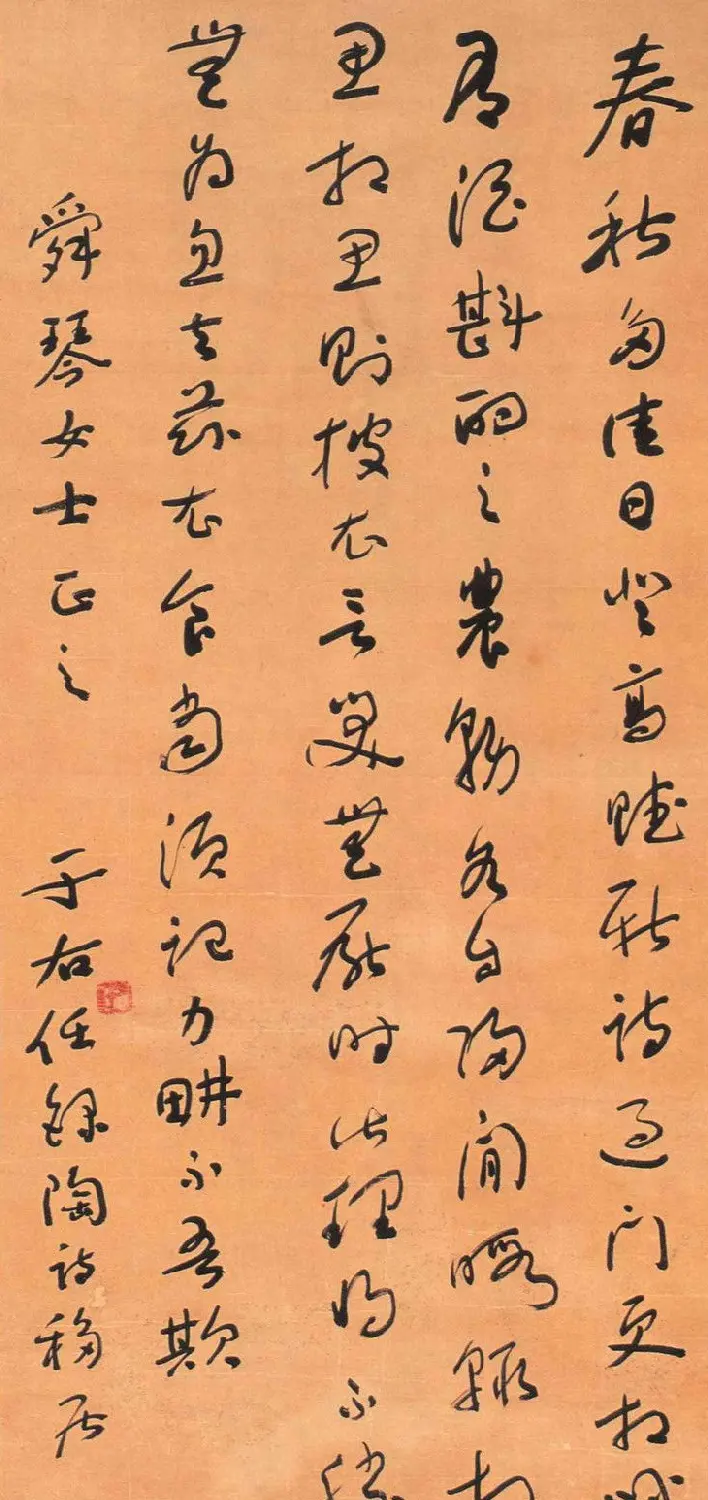 春秋多佳日登高賦新詩過門更相呼
有酒斟酌之農務各自歸閒暇輒相
思相思則披衣言笑無厭時此理將不勝
無為忽去茲衣食當須記力畊不吾欺
舜琴女士正之 于右任錄陶詩移居